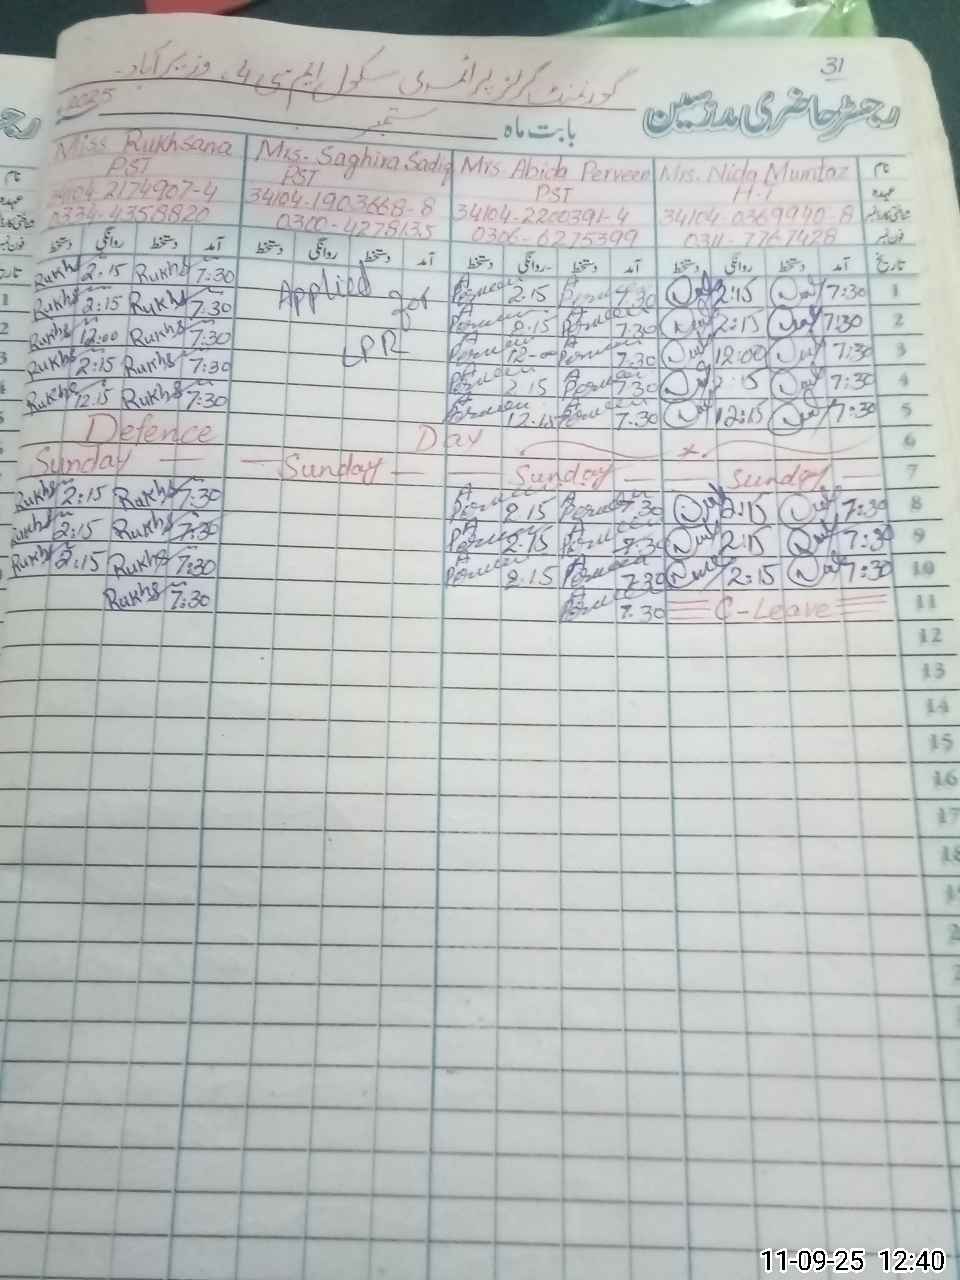 31
گورنمنٹ گرلز پرائمری سکول ایم سی 4، وزیرآباد۔
رجسٹر حاضری مدرسین
بابت ماہ ستمبر 2025
Miss Rukhsana Mrs. Saghira Sadiq Mrs Abida Perveen Mrs. Nida Mumtaz نام
PST PST PST H-T عہدہ
34104-2174907-4 34104-1903668-8 34104-2200391-4 34104-0369940-8
0334-4358820 0300-4278135 0306-6275399 0311-7767428 فون نمبر
دستخط روانگی دستخط آمد دستخط روانگی دستخط آمد دستخط روانگی دستخط آمد دستخط روانگی دستخط آمد تاریخ
Rukhs 2:15 Rukhs 7:30 Applied for Perveen 2.15 Perveen 7.30 2:15 7:30 1
Rukhs 2:15 Rukhs 7:30 Perveen 2.15 Perveen 7.30 2:15 7:30 2
Rukhs 12:00 Rukhs 7:30 LPR Perveen 12-00 Perveen 7.30 12:00 7:30 3
Rukhs 2:15 Rukhs 7:30 Perveen 2.15 Perveen 7.30 2:15 7:30 4
Rukhs 12:15 Rukhs 7:30 Perveen 12.15 Perveen 7.30 12:15 7:30 5
Defence Day 6
Sunday Sunday Sunday Sunday 7
Rukhs 2:15 Rukhs 7:30 Perveen 2.15 Perveen 7.30 2:15 7:30 8
Rukhs 2:15 Rukhs 7:30 Perveen 2.15 Perveen 7.30 2:15 7:30 9
Rukhs 2:15 Rukhs 7:30 Perveen 2.15 Perveen 7.30 2:15 7:30 10
Rukhs 7:30 Perveen 7.30 C-Leave 11
12
13
14
15
16
17
18
11-09-25 12:40